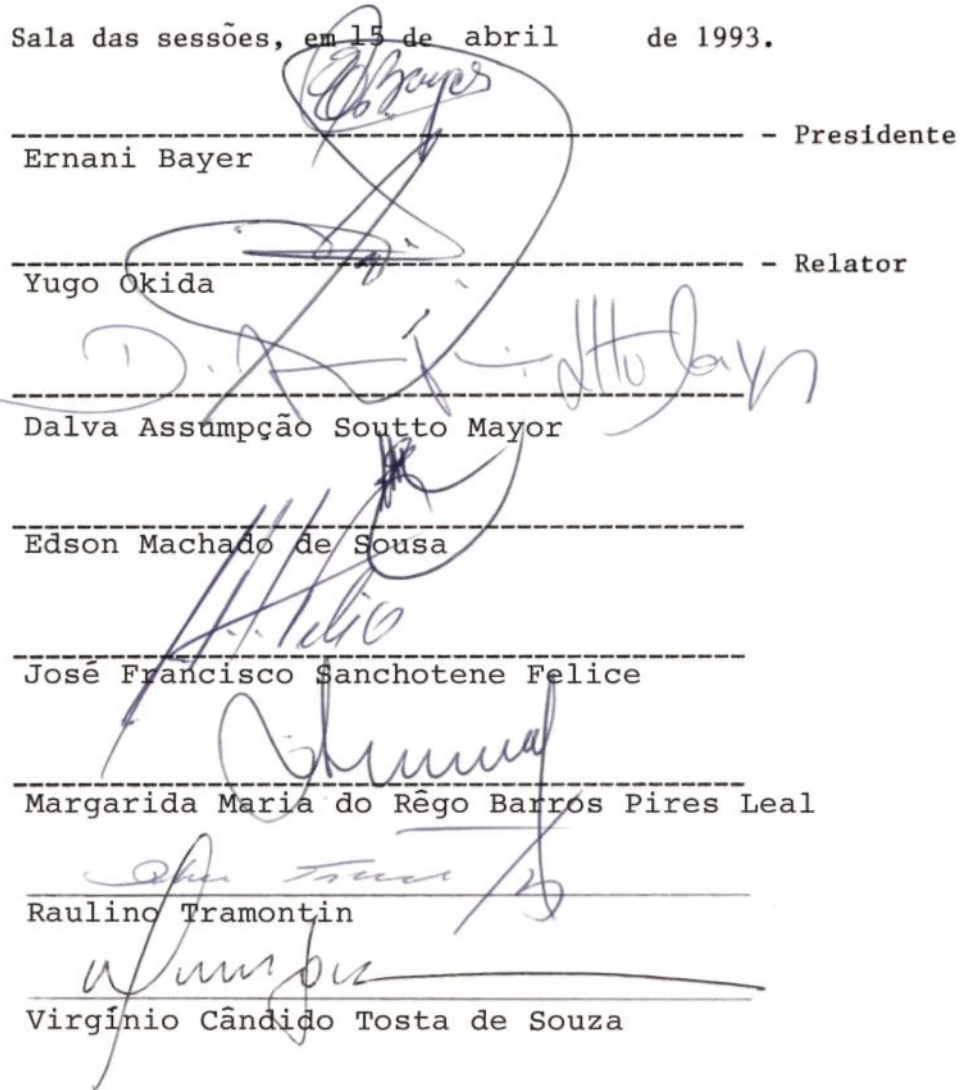 Sala das sessões, em 15 de abril de 1993.
- Presidente
Ernani Bayer
- Relator
Yugo Okida
Dalva Assumpção Soutto Mayor
Edson Machado de Sousa
José Francisco Sanchotene Felice
Margarida Maria do Rêgo Barros Pires Leal
Raulino Tramontin
Virgínio Cândido Tosta de Souza